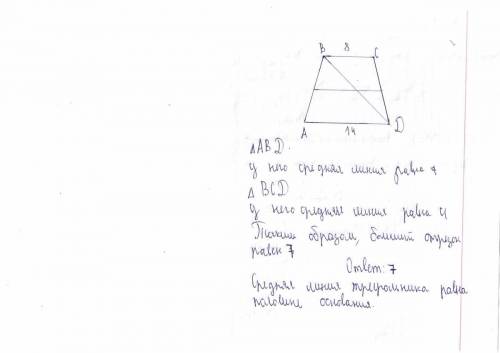 B 8 C
A 14 D
△ABD.
у него средняя линия равна 7
△ BCD
у него средняя линия равна 4
Таким образом, больший отрезок
равен 7
Ответ: 7
Средняя линия треугольника равна
половине основания.